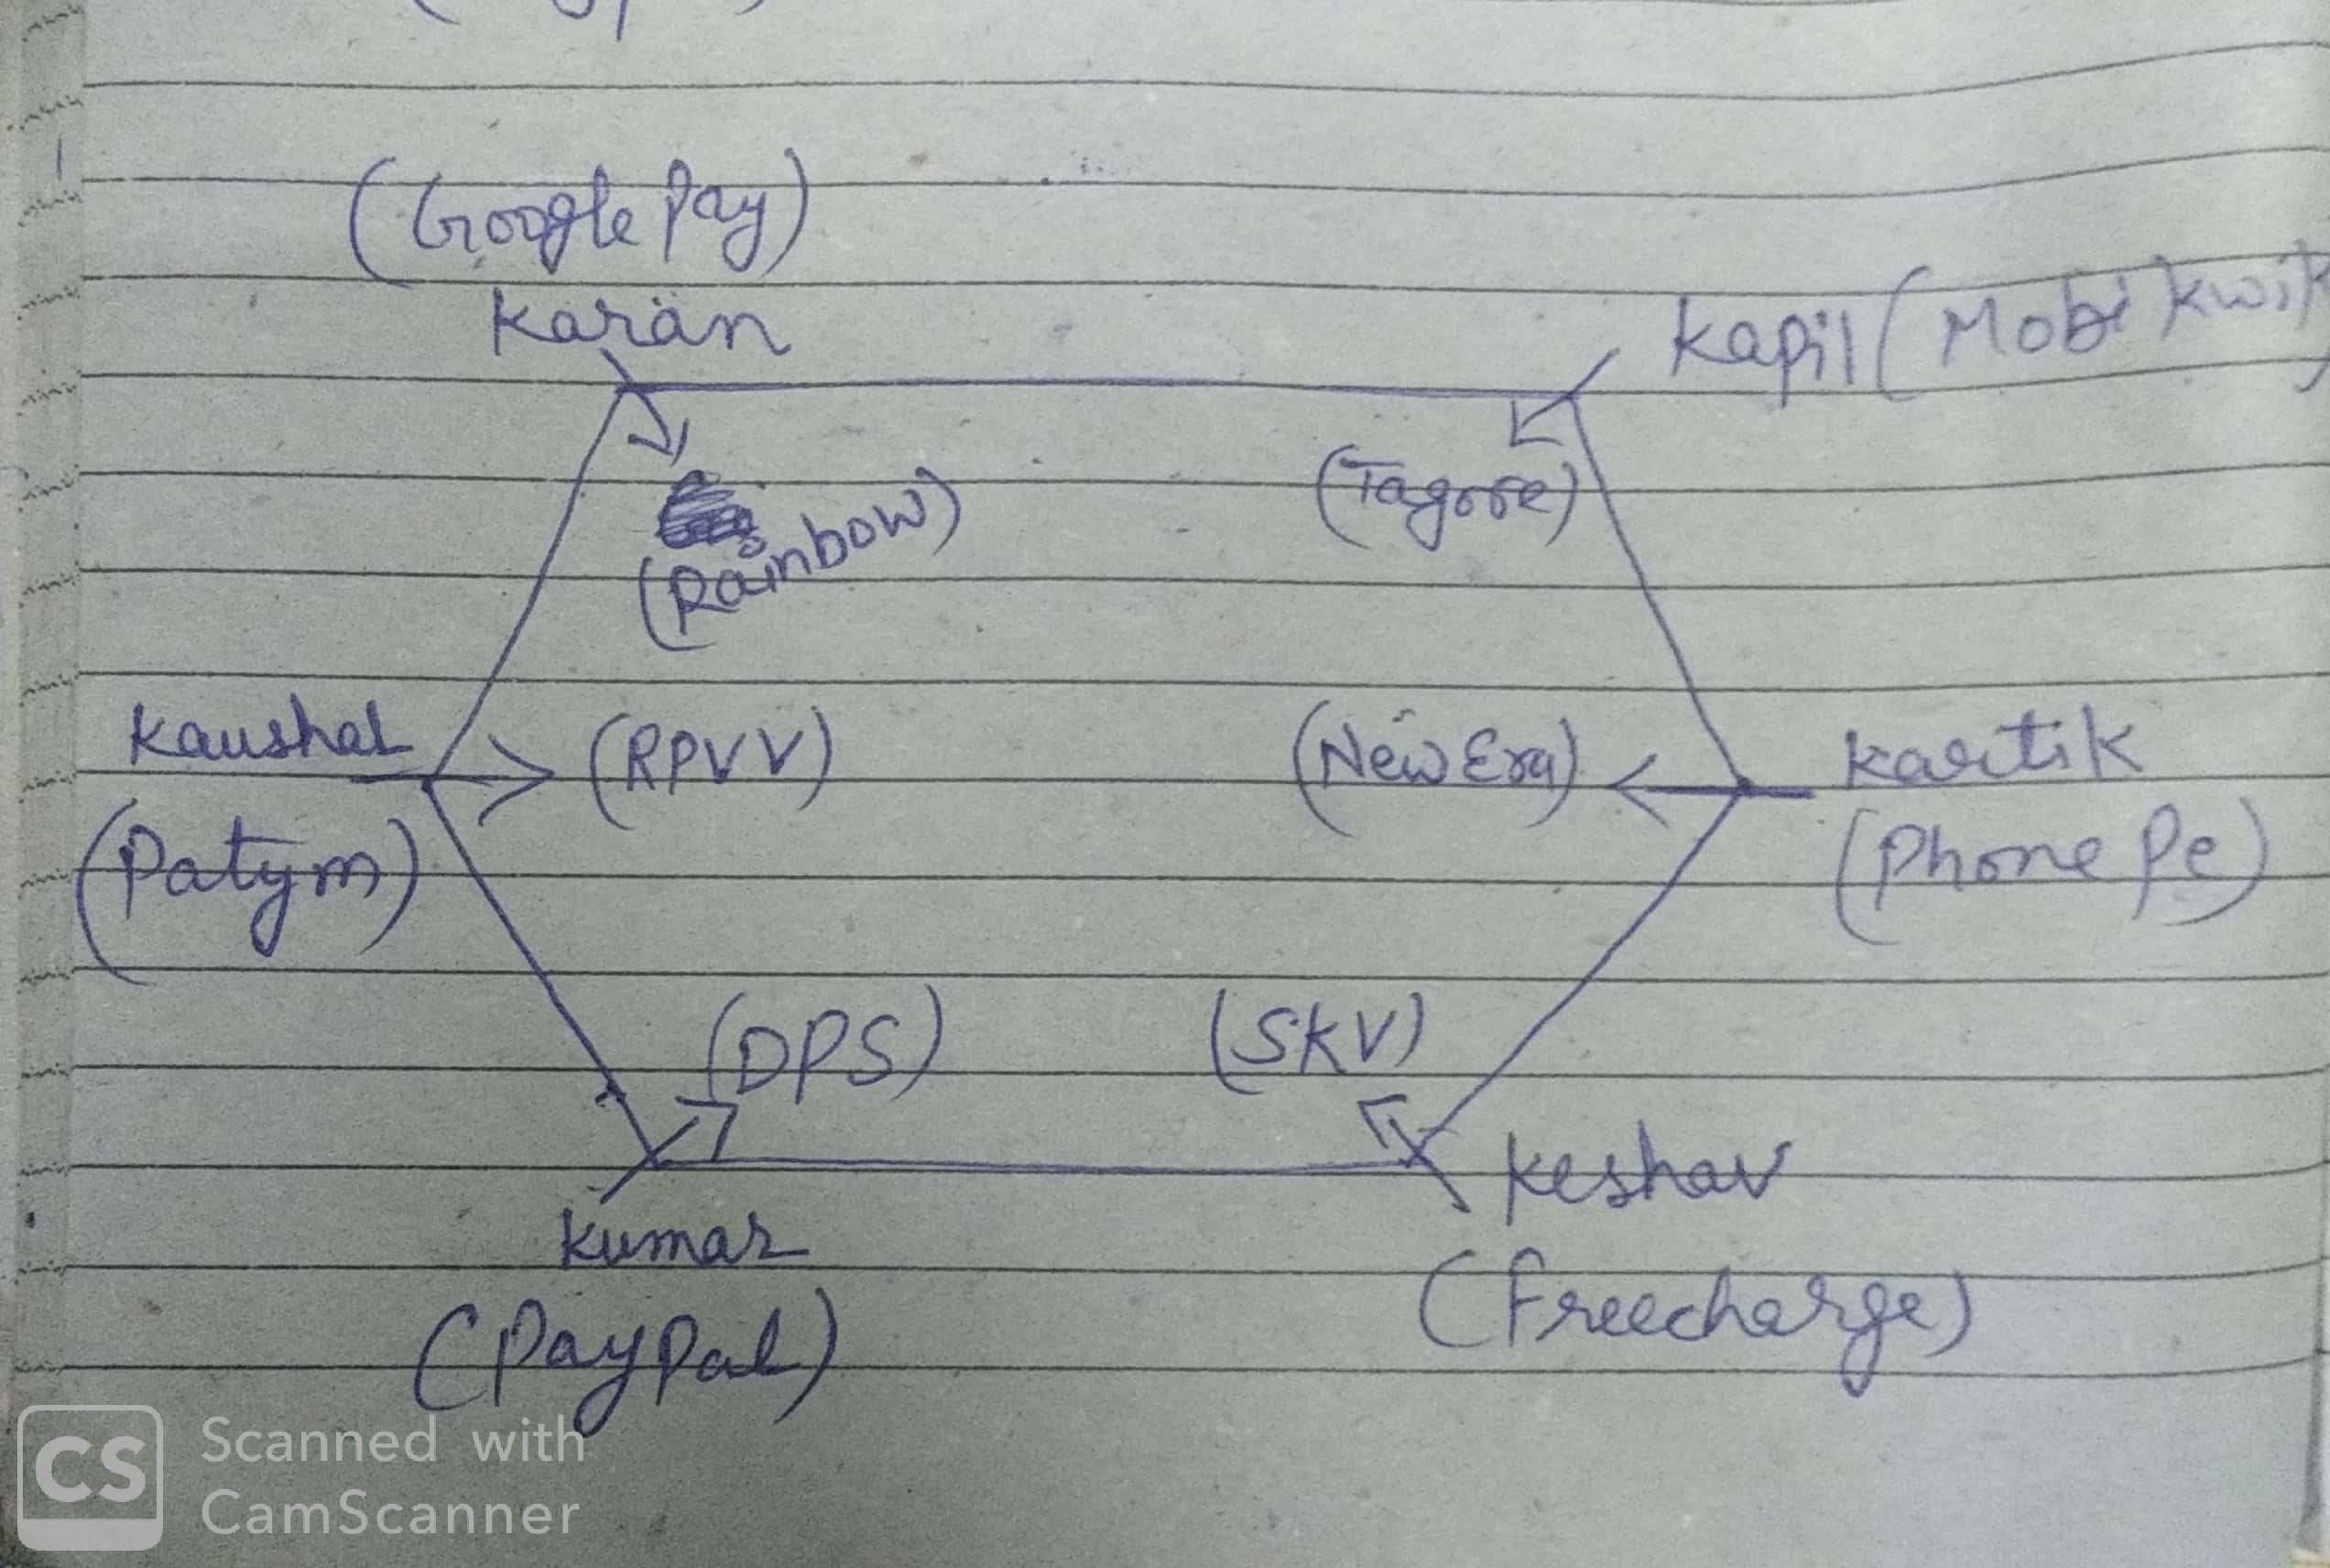 (Google Pay)
Karan
Kapil (Mobikwik
(Tagore)
(Rainbow)
Kaushal
(RPVV)
(New Era)
Kartik
(Patym)
(Phone Pe)
(DPS)
(SKV)
Keshav
Kumar
(Freecharge)
(PayPal)
CS
Scanned with
CamScanner